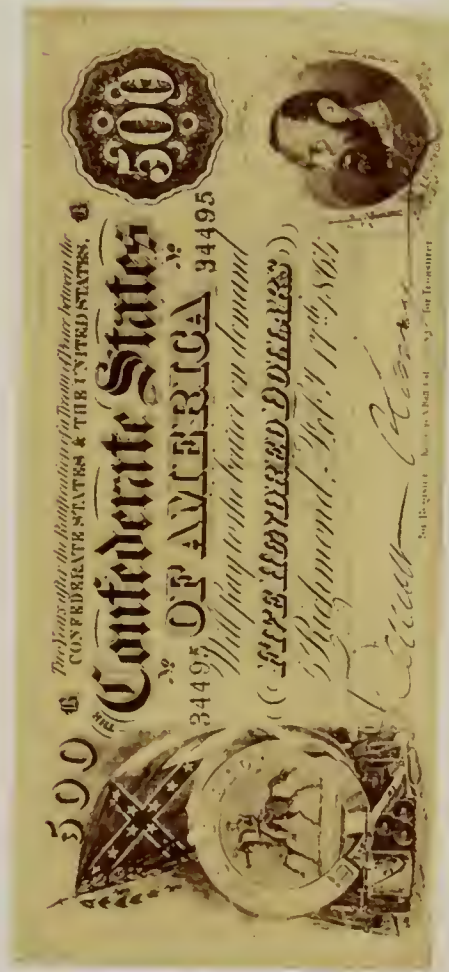 500
Two Years after the Ratification of a Treaty of Peace between the
CONFEDERATE STATES & THE UNITED STATES,
THE
Confederate States
OF AMERICA
500
No 34495
No 34495
Will pay to the bearer on demand
FIVE HUNDRED DOLLARS
Richmond, Feb.y 17th 1864
for Register
for Treasurer